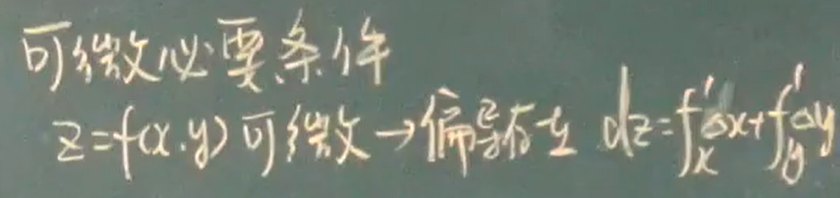 可微必要条件
z=f(x.y)可微→偏导存在 dz=f'ₓΔx+f'_yΔy